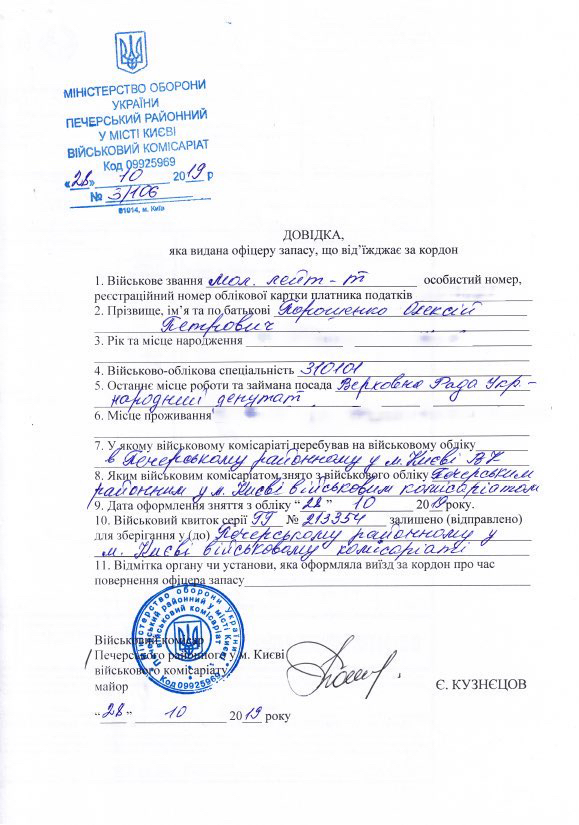 МІНІСТЕРСТВО ОБОРОНИ
УКРАЇНИ
ПЕЧЕРСЬКИЙ РАЙОННИЙ
У МІСТІ КИЄВІ
ВІЙСЬКОВИЙ КОМІСАРІАТ
Код 09925969
«28» 10 2019 р
№ 3/106
01014, м. Київ
ДОВІДКА,
яка видана офіцеру запасу, що від’їжджає за кордон
1. Військове звання мол. лейт-т особистий номер,
реєстраційний номер облікової картки платника податків
2. Прізвище, ім’я та по батькові Порошенко Олексій
Петрович
3. Рік та місце народження
4. Військово-облікова спеціальність 310101
5. Останнє місце роботи та займана посада Верховна Рада Укр-
народний депутат
6. Місце проживання
7. У якому військовому комісаріаті перебував на військовому обліку
в Печерському районному у м. Києві ВК
8. Яким військовим комісаріатом знято з військового обліку Печерським
районним у м. Києві військовим комісаріатом
9. Дата оформлення зняття з обліку “ 28 ” 10 2019 року.
10. Військовий квиток серії ГГ № 213354 залишено (відправлено)
для зберігання у (до) Печерському районному у
м. Києві військовому комісаріаті
11. Відмітка органу чи установи, яка оформляла виїзд за кордон про час
повернення офіцера запасу
Міністерство оборони України
Печерський районний у місті Києві
військовий комісаріат
Код 09925969
Військовий комісар
Печерського районного у м. Києві
військового комісаріату
майор
Є. КУЗНЄЦОВ
“ 28 ” 10 2019 року